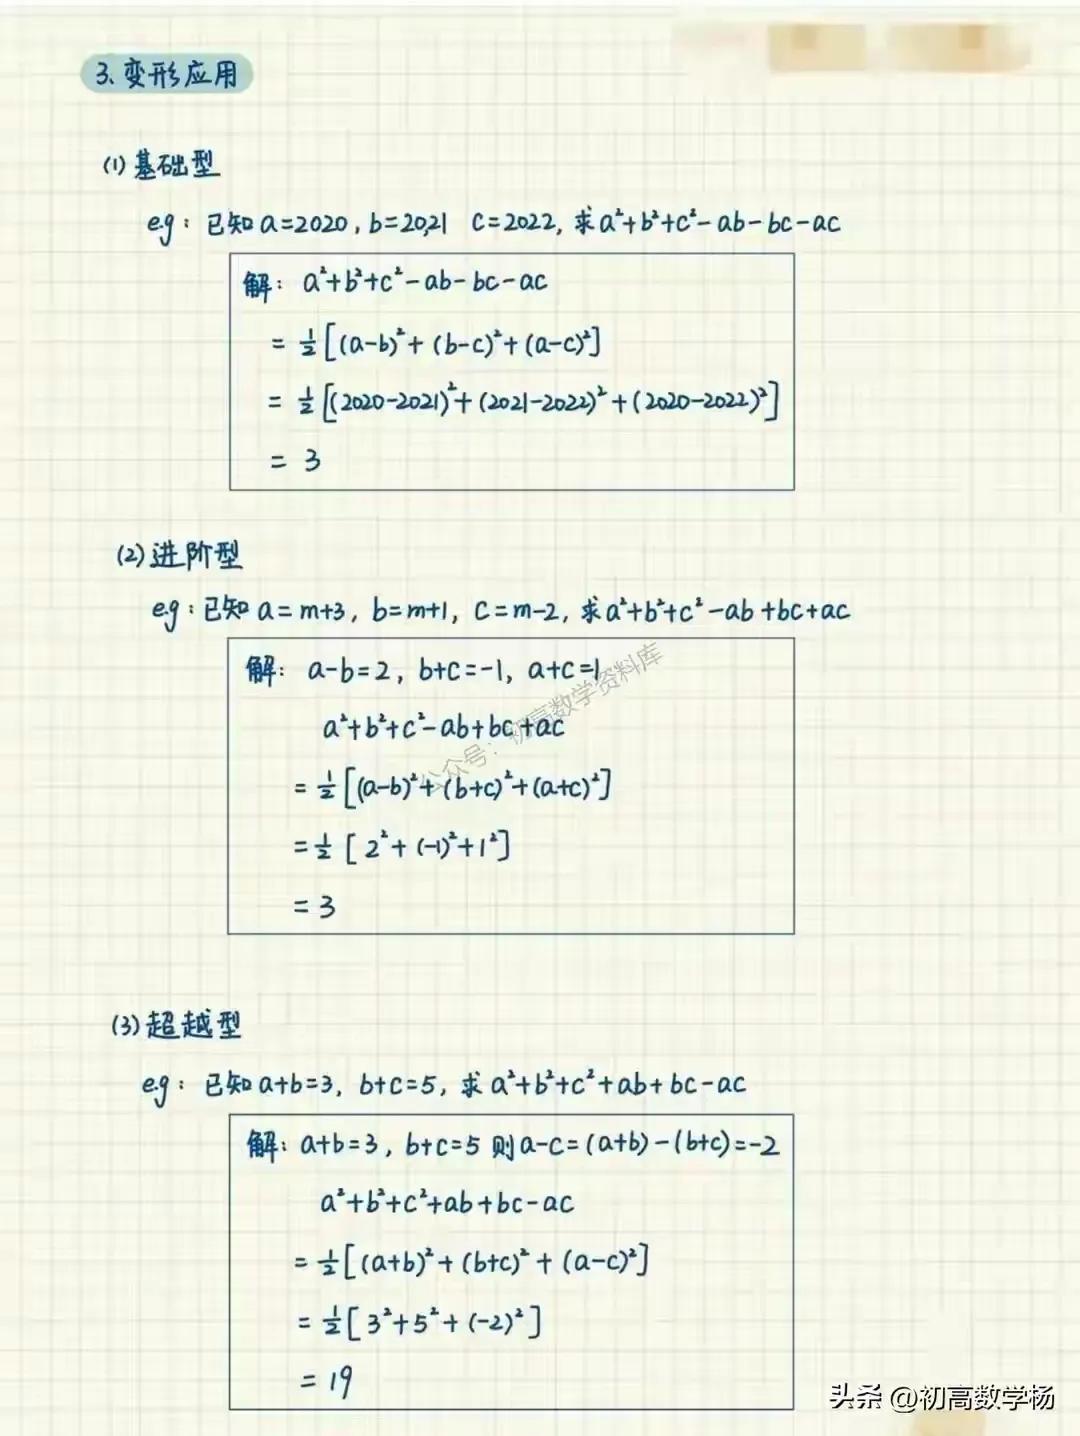 3、变形应用
(1) 基础型
e.g：已知a=2020，b=2021 c=2022，求a²+b²+c²-ab-bc-ac
解：a²+b²+c²-ab-bc-ac
=½[(a-b)²+(b-c)²+(a-c)²]
=½[(2020-2021)²+(2021-2022)²+(2020-2022)²]
=3
(2) 进阶型
e.g：已知a=m+3，b=m+1，c=m-2，求a²+b²+c²-ab+bc+ac
解：a-b=2，b+c=-1，a+c=1
a²+b²+c²-ab+bc+ac
=½[(a-b)²+(b+c)²+(a+c)²]
=½[2²+(-1)²+1²]
=3
公众号：初高数学资料库
(3) 超越型
e.g：已知a+b=3，b+c=5，求a²+b²+c²+ab+bc-ac
解：a+b=3，b+c=5 则a-c=(a+b)-(b+c)=-2
a²+b²+c²+ab+bc-ac
=½[(a+b)²+(b+c)²+(a-c)²]
=½[3²+5²+(-2)²]
=19
头条 @初高数学杨